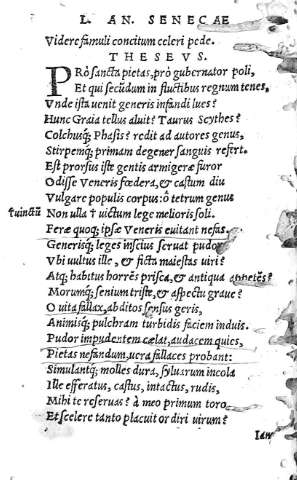 L. AN. SENECAE
Videre famuli concitum celeri pede.
THESEVS.
PRô sancta pietas, prô gubernator poli,
Et qui secũdum in fluctibus regnum tenes,
Vnde ista uenit generis infandi lues?
Hunc Graia tellus aluit? Taurus Scythes?
Colchusq́; Phasis? redit ad autores genus,
Stirpemq́; primam degener sanguis refert.
Est prorsus iste gentis armigeræ furor
Odisse Veneris fœdera, & castum diu
Vulgare populis corpus: ô tetrum genus
† uinctũ Non ulla † uictum lege melioris soli.
Feræ quoq; ipsæ Veneris euitant nefas.
Generisq́; leges inscius seruat pudor
Vbi uultus ille, & ficta maiestas uiri?
Atq; habitus horrẽs prisca, & antiqua appetẽs?
Morumq́; senium triste, & aspectu graue?
O uita fallax, abditos sensus geris,
Animisq́; pulchram turbidis faciem induis.
Pudor impudentem cælat, audacem quies,
Pietas nefandum, uera fallaces probant:
Simulantq́; molles dura, syluarum incola
Ille efferatus, castus, intactus, rudis,
Mihi te reseruas? à meo primum toro
Et scelere tanto placuit ordiri uirum?
Iam